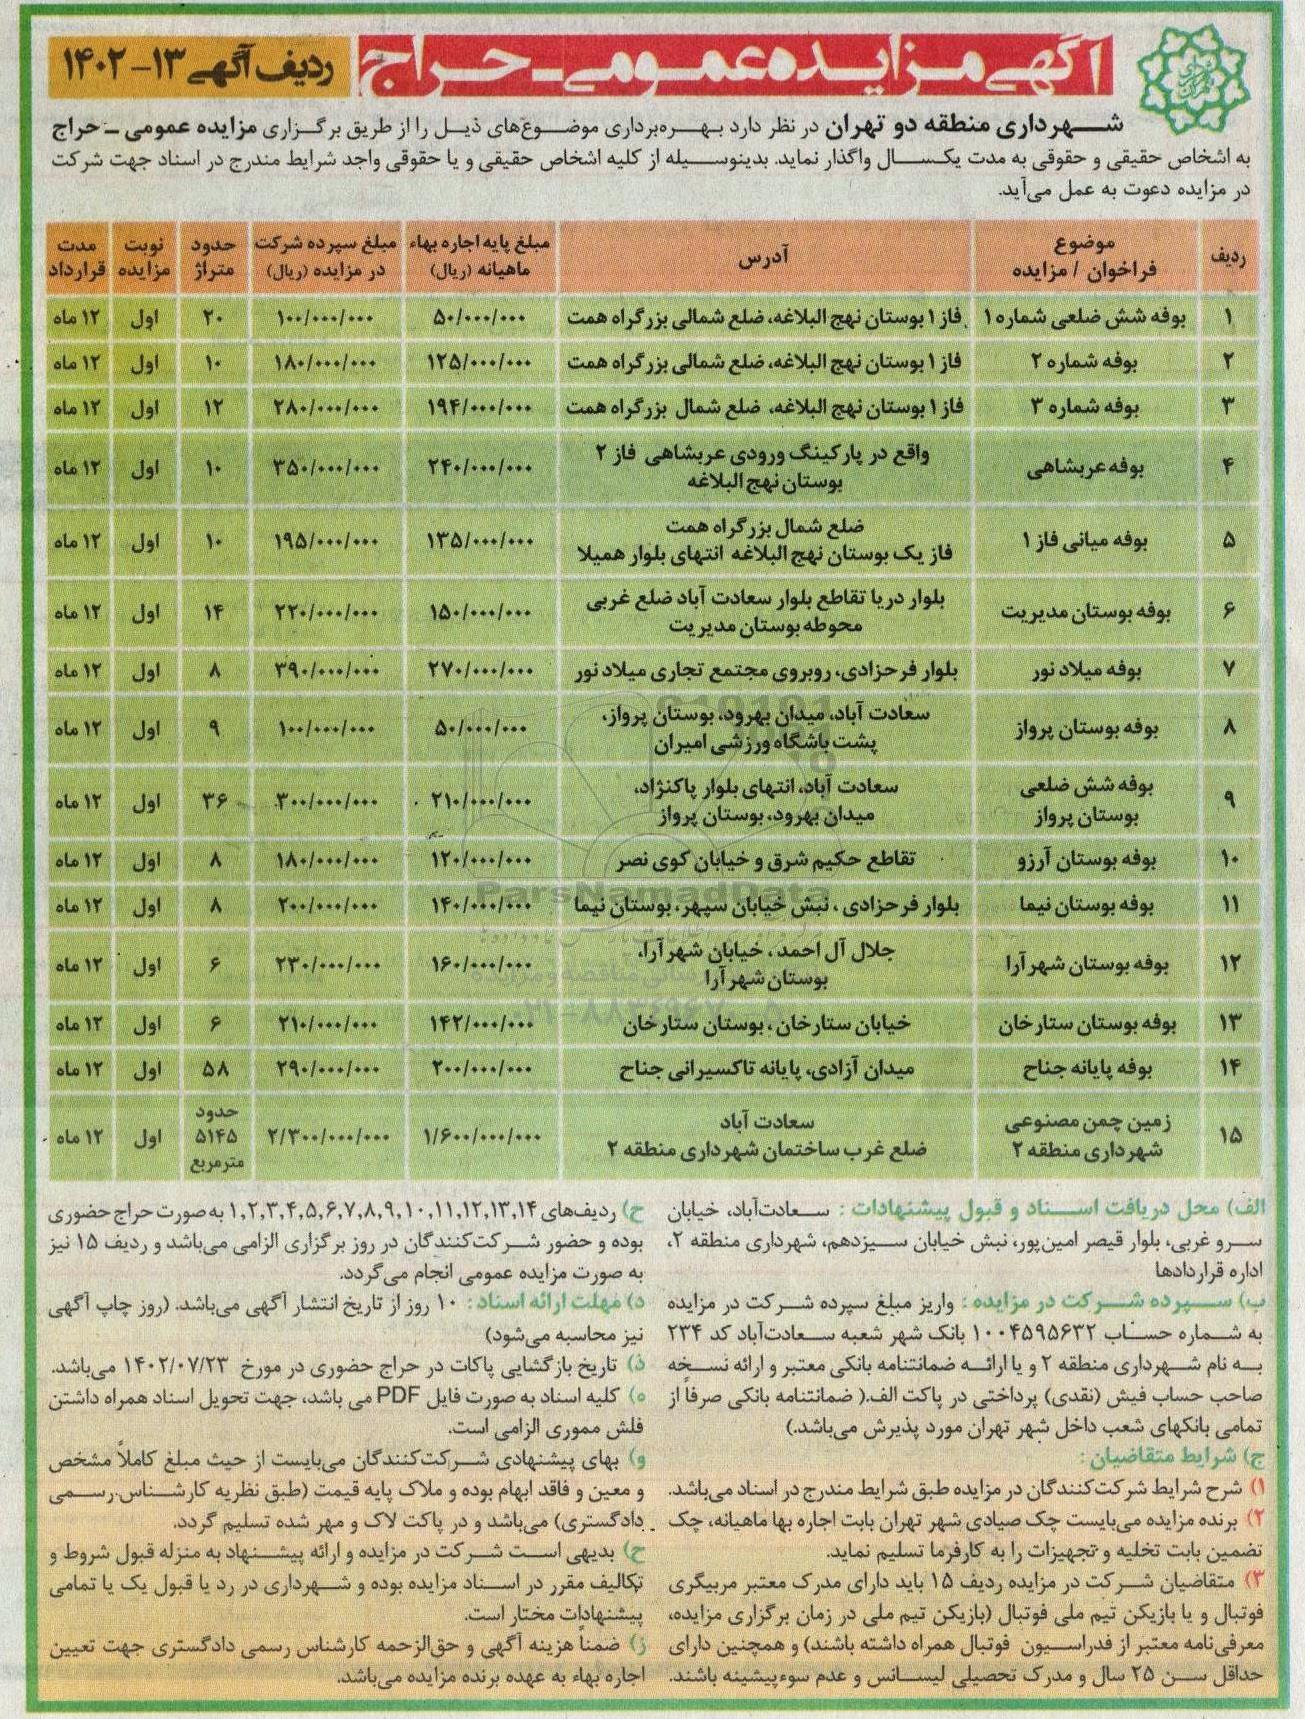 آگهی مزایده عمومی - حراج
ردیف آگهی ۱۳-۱۴۰۲
شهرداری منطقه دو تهران در نظر دارد بهره‌برداری موضوع‌های ذیل را از طریق برگزاری مزایده عمومی - حراج
به اشخاص حقیقی و حقوقی به مدت یکسال واگذار نماید. بدینوسیله از کلیه اشخاص حقیقی و یا حقوقی واجد شرایط مندرج در اسناد جهت شرکت
در مزایده دعوت به عمل می‌آید.
ردیف | موضوع فراخوان / مزایده | آدرس | مبلغ پایه اجاره بهاء ماهیانه (ریال) | مبلغ سپرده شرکت در مزایده (ریال) | حدود متراژ | نوبت مزایده | مدت قرارداد
۱ | بوفه شش ضلعی شماره ۱ | فاز ۱ بوستان نهج البلاغه، ضلع شمالی بزرگراه همت | ۵۰/۰۰۰/۰۰۰ | ۱۰۰/۰۰۰/۰۰۰ | ۲۰ | اول | ۱۲ ماه
۲ | بوفه شماره ۲ | فاز ۱ بوستان نهج البلاغه، ضلع شمالی بزرگراه همت | ۱۲۵/۰۰۰/۰۰۰ | ۱۸۰/۰۰۰/۰۰۰ | ۱۰ | اول | ۱۲ ماه
۳ | بوفه شماره ۳ | فاز ۱ بوستان نهج البلاغه، ضلع شمال بزرگراه همت | ۱۹۴/۰۰۰/۰۰۰ | ۲۸۰/۰۰۰/۰۰۰ | ۱۲ | اول | ۱۲ ماه
۴ | بوفه عربشاهی | واقع در پارکینگ ورودی عربشاهی فاز ۲ بوستان نهج البلاغه | ۲۴۰/۰۰۰/۰۰۰ | ۳۵۰/۰۰۰/۰۰۰ | ۱۰ | اول | ۱۲ ماه
۵ | بوفه میانی فاز ۱ | ضلع شمال بزرگراه همت فاز یک بوستان نهج البلاغه انتهای بلوار همیلا | ۱۳۵/۰۰۰/۰۰۰ | ۱۹۵/۰۰۰/۰۰۰ | ۱۰ | اول | ۱۲ ماه
۶ | بوفه بوستان مدیریت | بلوار دریا تقاطع بلوار سعادت آباد ضلع غربی محوطه بوستان مدیریت | ۱۵۰/۰۰۰/۰۰۰ | ۲۲۰/۰۰۰/۰۰۰ | ۱۴ | اول | ۱۲ ماه
۷ | بوفه میلاد نور | بلوار فرحزادی، روبروی مجتمع تجاری میلاد نور | ۲۷۰/۰۰۰/۰۰۰ | ۳۹۰/۰۰۰/۰۰۰ | ۸ | اول | ۱۲ ماه
۸ | بوفه بوستان پرواز | سعادت آباد، میدان بهرود، بوستان پرواز، پشت باشگاه ورزشی امیران | ۵۰/۰۰۰/۰۰۰ | ۱۰۰/۰۰۰/۰۰۰ | ۹ | اول | ۱۲ ماه
۹ | بوفه شش ضلعی بوستان پرواز | سعادت آباد، انتهای بلوار پاکنژاد، میدان بهرود، بوستان پرواز | ۲۱۰/۰۰۰/۰۰۰ | ۳۰۰/۰۰۰/۰۰۰ | ۳۶ | اول | ۱۲ ماه
۱۰ | بوفه بوستان آرزو | تقاطع حکیم شرق و خیابان کوی نصر | ۱۲۰/۰۰۰/۰۰۰ | ۱۸۰/۰۰۰/۰۰۰ | ۸ | اول | ۱۲ ماه
۱۱ | بوفه بوستان نیما | بلوار فرحزادی، نبش خیابان سپهر، بوستان نیما | ۱۴۰/۰۰۰/۰۰۰ | ۲۰۰/۰۰۰/۰۰۰ | ۸ | اول | ۱۲ ماه
۱۲ | بوفه بوستان شهرآرا | جلال آل احمد، خیابان شهرآرا، بوستان شهرآرا | ۱۶۰/۰۰۰/۰۰۰ | ۲۳۰/۰۰۰/۰۰۰ | ۶ | اول | ۱۲ ماه
۱۳ | بوفه بوستان ستارخان | خیابان ستارخان، بوستان ستارخان | ۱۴۲/۰۰۰/۰۰۰ | ۲۱۰/۰۰۰/۰۰۰ | ۶ | اول | ۱۲ ماه
۱۴ | بوفه پایانه جناح | میدان آزادی، پایانه تاکسیرانی جناح | ۲۰۰/۰۰۰/۰۰۰ | ۲۹۰/۰۰۰/۰۰۰ | ۵۸ | اول | ۱۲ ماه
۱۵ | زمین چمن مصنوعی شهرداری منطقه ۲ | سعادت آباد ضلع غرب ساختمان شهرداری منطقه ۲ | ۱/۶۰۰/۰۰۰/۰۰۰ | ۲/۳۰۰/۰۰۰/۰۰۰ | حدود ۵۱۴۵ مترمربع | اول | ۱۲ ماه
ParsNamadData
الف) محل دریافت اسناد و قبول پیشنهادات : سعادت‌آباد، خیابان
سرو غربی، بلوار قیصر امین‌پور، نبش خیابان سیزدهم، شهرداری منطقه ۲،
اداره قراردادها
ب) سپرده شرکت در مزایده : واریز مبلغ سپرده شرکت در مزایده
به شماره حساب ۱۰۰۴۵۹۵۶۳۲ بانک شهر شعبه سعادت‌آباد کد ۲۳۴
به نام شهرداری منطقه ۲ و یا ارائه ضمانتنامه بانکی معتبر و ارائه نسخه
صاحب حساب فیش (نقدی) پرداختی در پاکت الف.( ضمانتنامه بانکی صرفاً از
تمامی بانکهای شعب داخل شهر تهران مورد پذیرش می‌باشد.)
ج) شرایط متقاضیان :
۱) شرح شرایط شرکت‌کنندگان در مزایده طبق شرایط مندرج در اسناد می‌باشد.
۲) برنده مزایده می‌بایست چک صیادی شهر تهران بابت اجاره بها ماهیانه، چک
تضمین بابت تخلیه و تجهیزات را به کارفرما تسلیم نماید.
۳) متقاضیان شرکت در مزایده ردیف ۱۵ باید دارای مدرک معتبر مربیگری
فوتبال و یا بازیکن تیم ملی فوتبال (بازیکن تیم ملی در زمان برگزاری مزایده،
معرفی‌نامه معتبر از فدراسیون فوتبال همراه داشته باشند) و همچنین دارای
حداقل سن ۲۵ سال و مدرک تحصیلی لیسانس و عدم سوءپیشینه باشند.
ح) ردیف‌های ۱,۲,۳,۴,۵,۶,۷,۸,۹,۱۰,۱۱,۱۲,۱۳,۱۴ به صورت حراج حضوری
بوده و حضور شرکت‌کنندگان در روز برگزاری الزامی می‌باشد و ردیف ۱۵ نیز
به صورت مزایده عمومی انجام می‌گردد.
د) مهلت ارائه اسناد : ۱۰ روز از تاریخ انتشار آگهی می‌باشد. (روز چاپ آگهی
نیز محاسبه می‌شود)
ذ) تاریخ بازگشایی پاکات در حراج حضوری در مورخ ۱۴۰۲/۰۷/۲۳ می‌باشد.
ه) کلیه اسناد به صورت فایل PDF می باشد، جهت تحویل اسناد همراه داشتن
فلش مموری الزامی است.
و) بهای پیشنهادی شرکت‌کنندگان می‌بایست از حیث مبلغ کاملاً مشخص
و معین و فاقد ابهام بوده و ملاک پایه قیمت (طبق نظریه کارشناس رسمی
دادگستری) می‌باشد و در پاکت لاک و مهر شده تسلیم گردد.
ح) بدیهی است شرکت در مزایده و ارائه پیشنهاد به منزله قبول شروط و
تکالیف مقرر در اسناد مزایده بوده و شهرداری در رد یا قبول یک یا تمامی
پیشنهادات مختار است.
ز) ضمناً هزینه آگهی و حق‌الزحمه کارشناس رسمی دادگستری جهت تعیین
اجاره بهاء به عهده برنده مزایده می‌باشد.